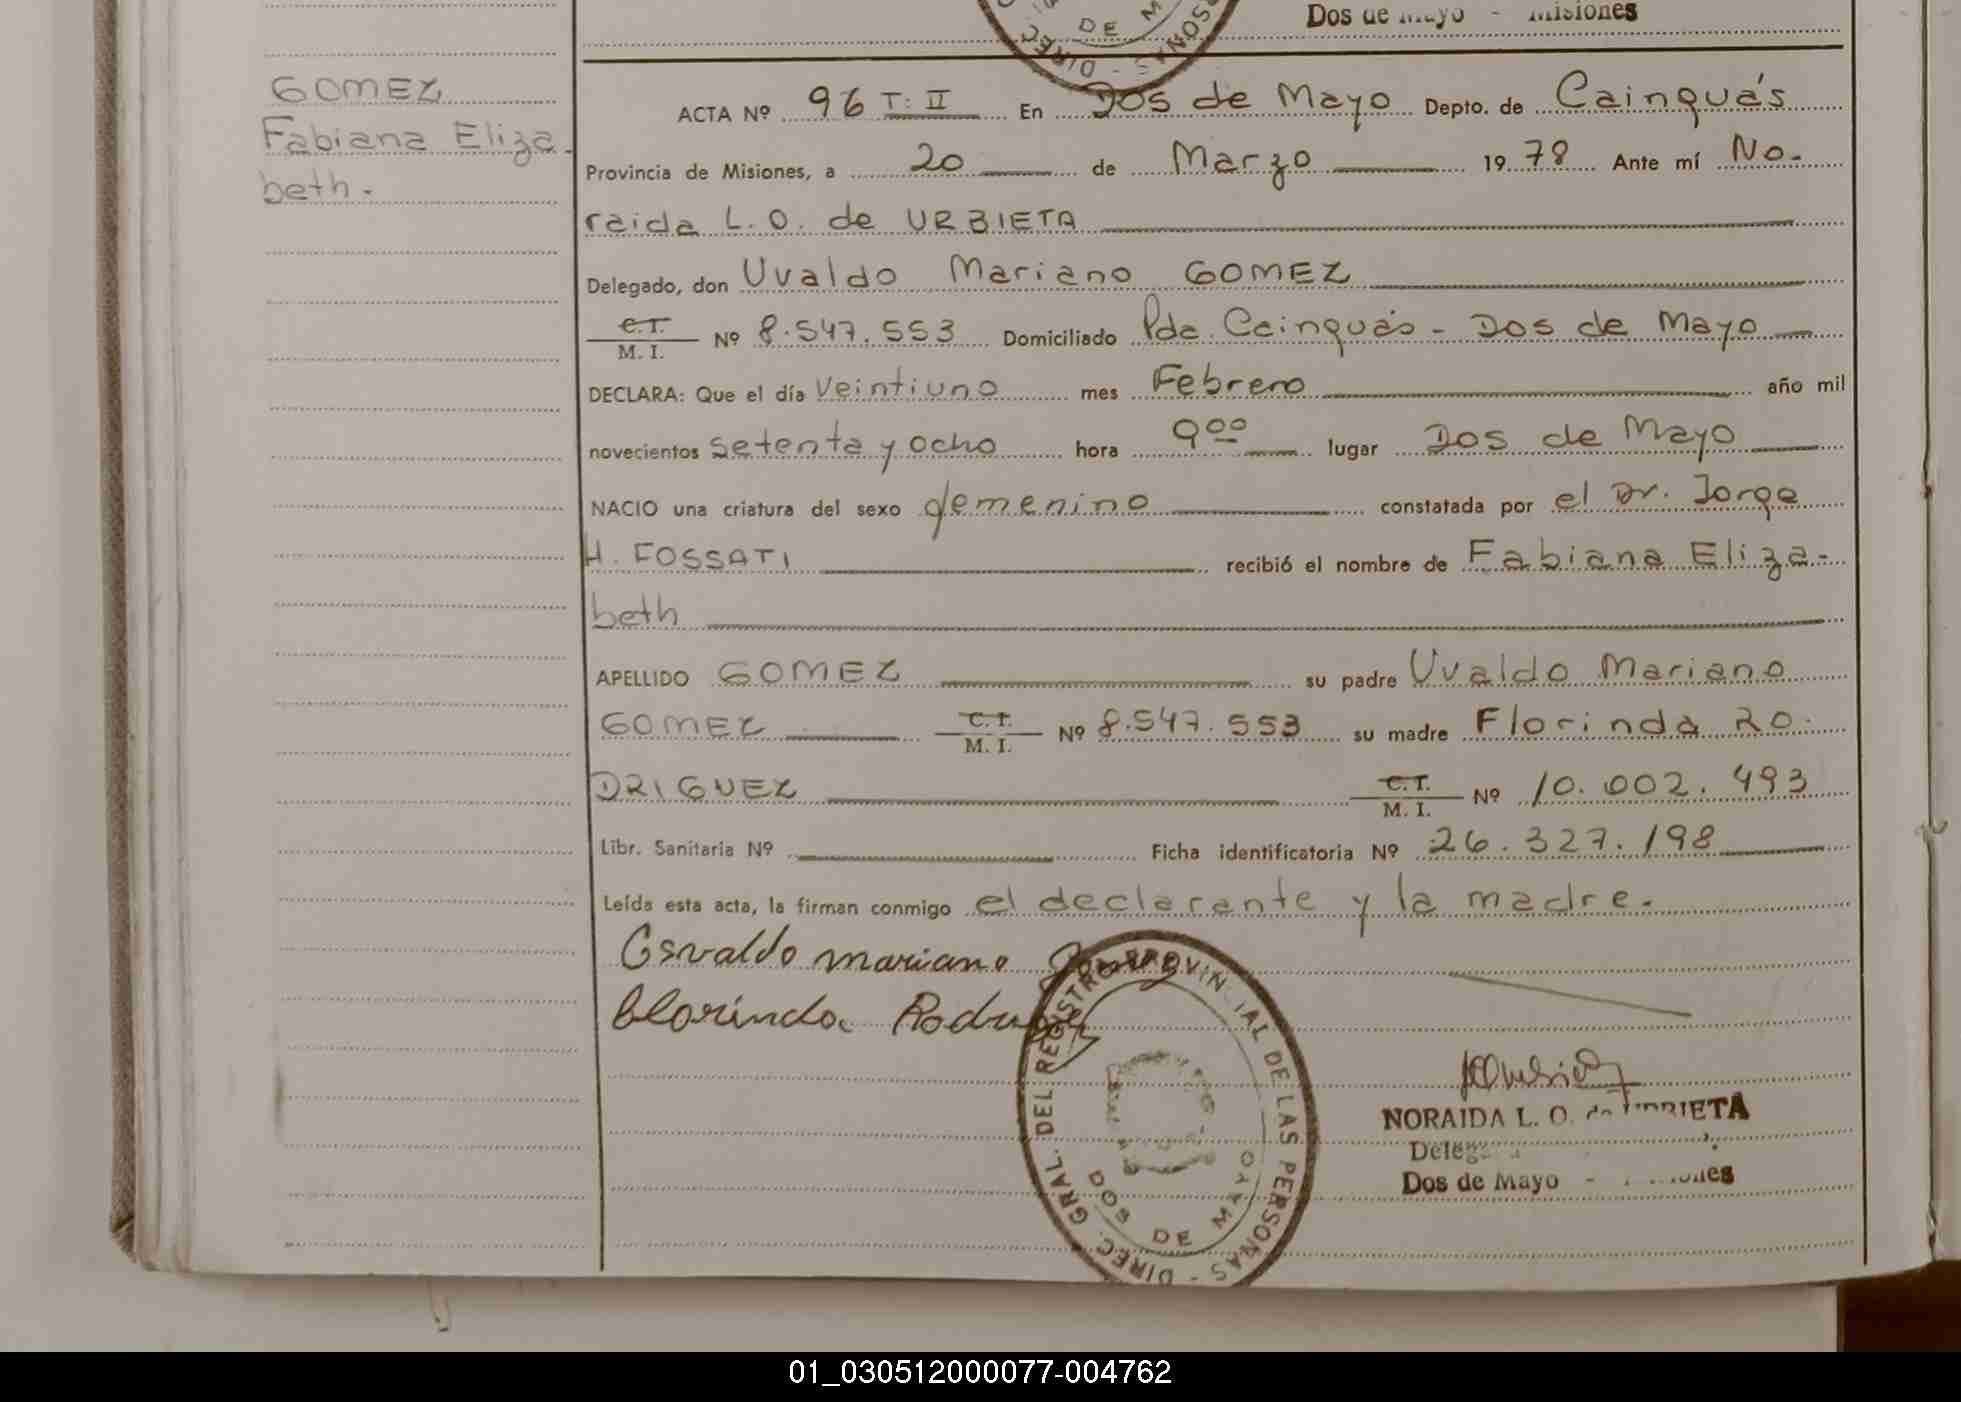 Dos de Mayo - Misiones
GOMEZ
Fabiana Eliza-
beth.
ACTA Nº 96 T: II En Dos de Mayo Depto. de Cainguás
Provincia de Misiones, a 20 de Marzo 19 78 Ante mí No-
raida L. O. de URBIETA
Delegado, don Uvaldo Mariano GOMEZ
C.I. / M. I. Nº 8.547.553 Domiciliado Pde. Cainguás - Dos de Mayo
DECLARA: Que el día veintiuno mes Febrero año mil
novecientos setenta y ocho hora 9 00 lugar Dos de Mayo
NACIO una criatura del sexo femenino constatada por el Dr. Jorge
H. FOSSATI recibió el nombre de Fabiana Eliza-
beth
APELLIDO GOMEZ su padre Uvaldo Mariano
GOMEZ C.I. / M. I. Nº 8.547.553 su madre Florinda RO-
DRIGUEZ C.I. / M. I. Nº 10.002.493
Libr. Sanitaria Nº Ficha identificatoria Nº 26.327.198
Leída esta acta, la firman conmigo el declarante y la madre.
Osvaldo mariano Gomez
Florinda Rodriguez
DIREC. GRAL. DEL REGISTRO PROVINCIAL DE LAS PERSONAS
DOS DE MAYO
NORAIDA L. O. de URBIETA
Delegada
Dos de Mayo - Misiones
01_030512000077-004762